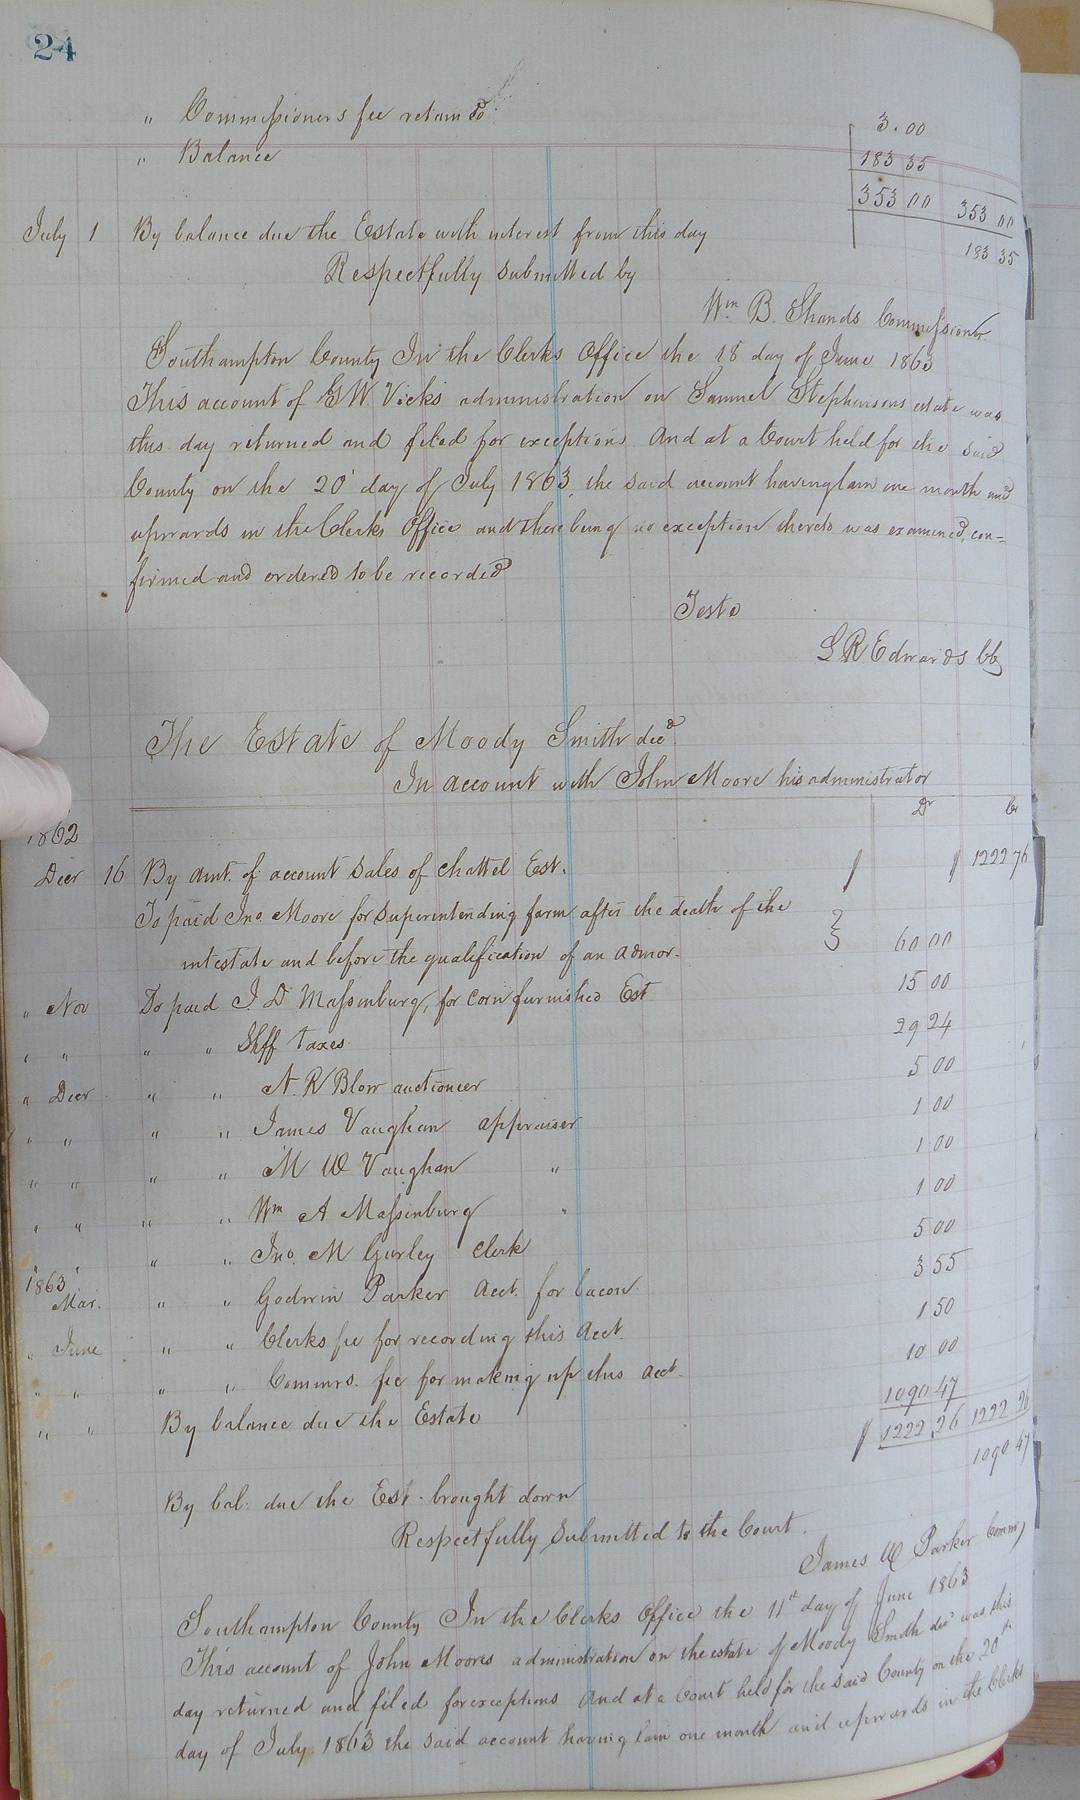 24
" Commissioners fee retaind 3.00
" Balance 183 35
353 00 353 00
July 1 By balance due the Estate with interest from this day 183 35
Respectfully submitted by
Wm B. Shands Commissioner
Southampton County In the Clerks Office the 18 day of June 1863
This account of G W Vicks administration on Samuel Stephensons estate was
this day returned and filed for exceptions And at a Court held for the said
County on the 20' day of July 1863, the said account having lain one month and
upwards in the Clerks Office and there being no exception thereto was examined, con=
firmed and ordered to be recorded
Teste
L R Edwards CC
The Estate of Moody Smith decd
In account with John Moore his administrator
Dr Cr
1862
Decr 16 By amt. of account sales of chattel Est. $ $ 1222 76
To paid Jno Moore for superintending farm after the death of the
intestate and before the qualification of an admor. 60 00
" Nov To paid J. D Massenburg, for corn furnished Est 15 00
" " " " Shff taxes 29 24
" Decr " " N. R Blow auctioneer 5 00
" " " " James Vaughan appraiser 1 00
" " " " M W Vaughan " 1 00
" " " " Wm A Massenburg " 1 00
" " Jno. M Gurley Clerk 5 00
1863
Mar. " " Godwin Parker Acct. for bacon 3 55
" June " " Clerks fee for recording this Acct. 1 50
" " " " Commrs. fee for making up this acct 10 00
" " By balance due the Estate 1090 47
$ 1222 26 1222 26
By bal: due the Est. brought down 1090 47
Respectfully submitted to the Court.
James W Parker Commr
Southampton County In the Clerks Office the 11th day of June 1863
This account of John Moores administration on the estate of Moody Smith decd was this
day returned and filed for exceptions And at a Court held for the said County on the 20th
day of July 1863 the said account having lain one month and upwards in the Clerks